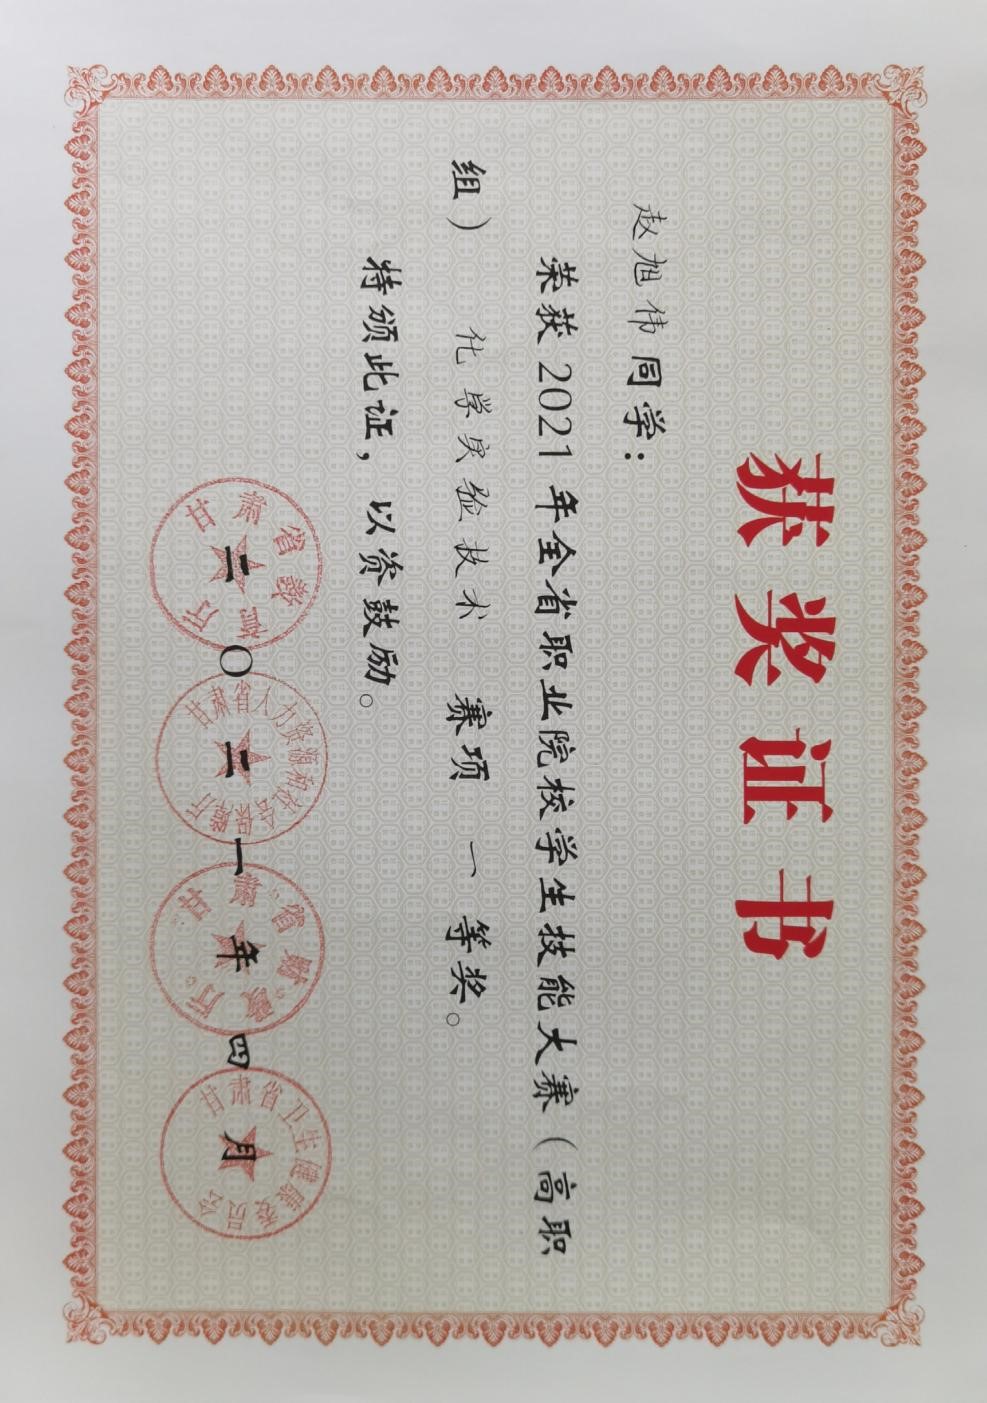 获奖证书
赵旭伟同学：
荣获2021年全省职业院校学生技能大赛（高职
组） 化学实验技术 赛项 一 等奖。
特颁此证，以资鼓励。
甘肃省教育厅
甘肃省人力资源和社会保障厅
甘肃省财政厅
甘肃省卫生健康委员会
二〇二一年四月